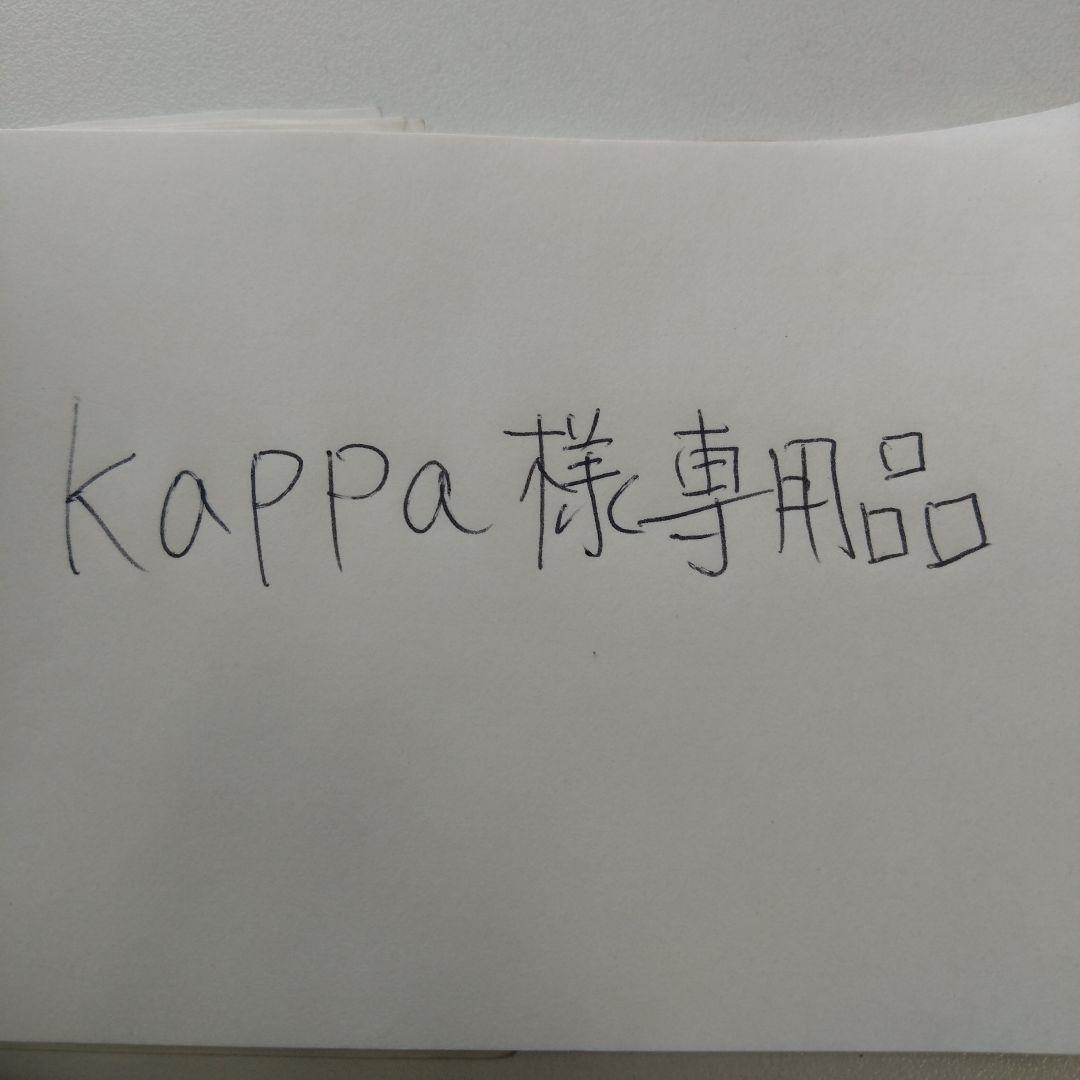 kappa様専用品